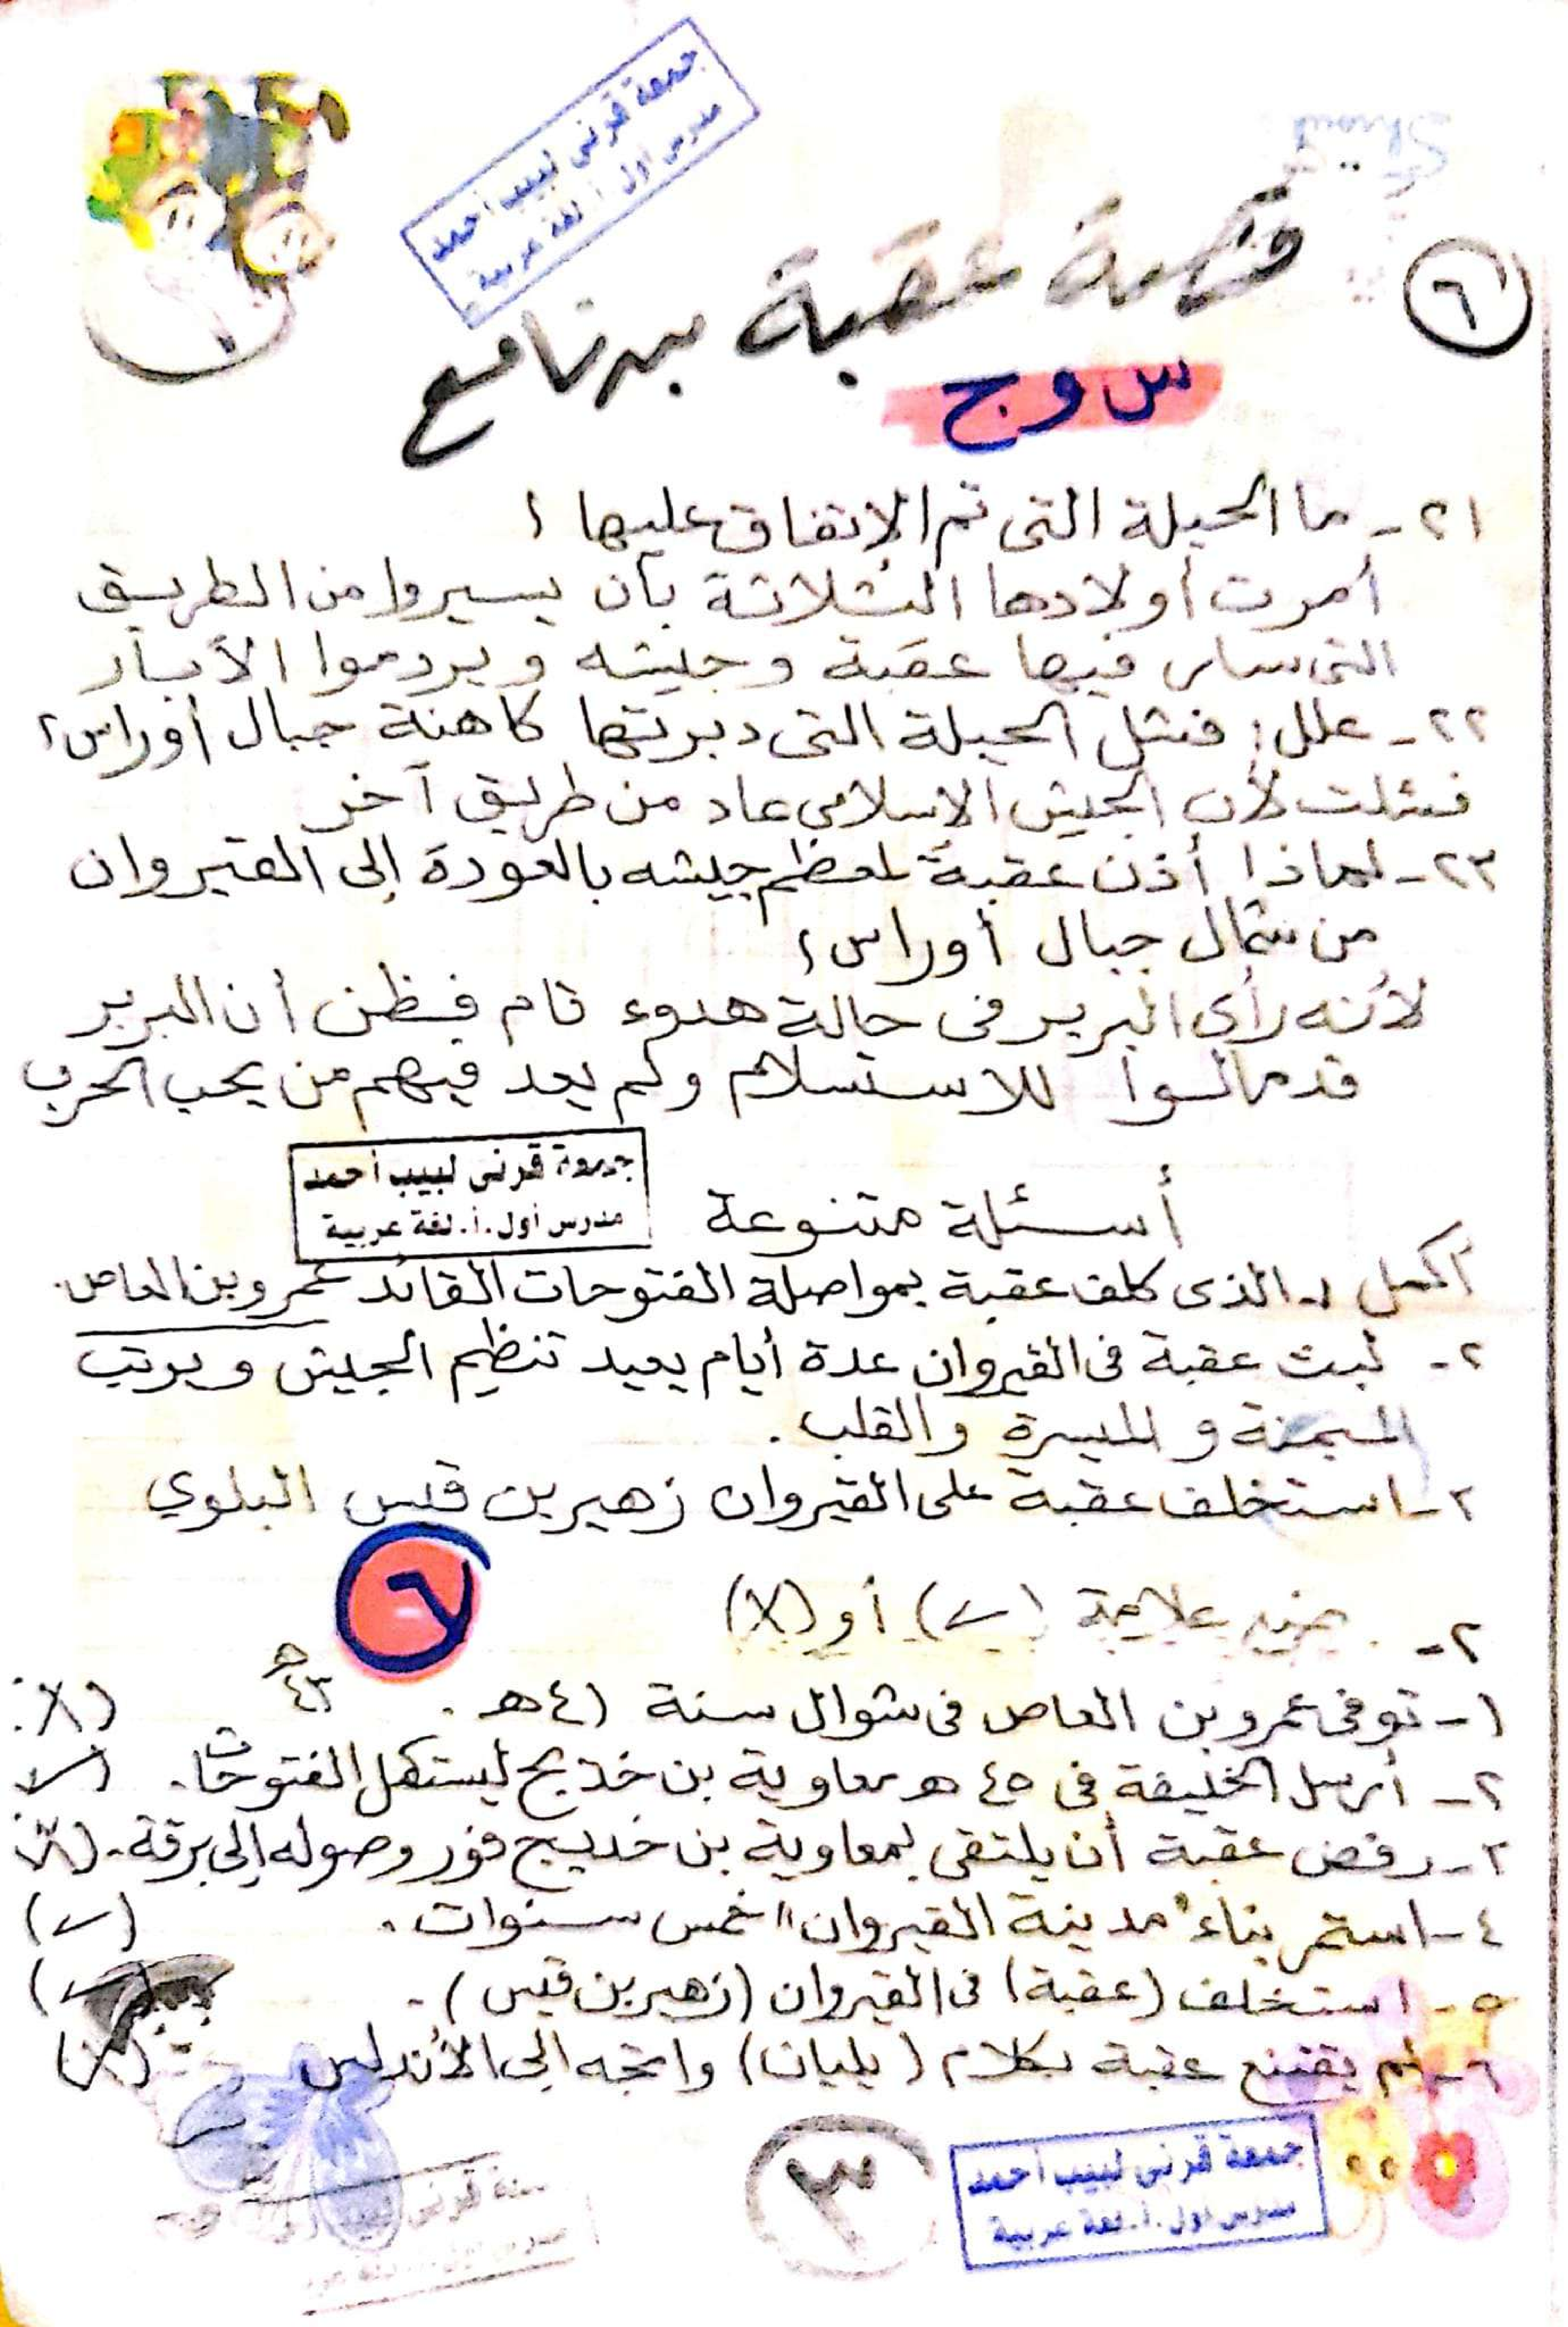 جمعة قرنى لبيب أحمد
مدرس أول أ لغة عربية
٦
قصة عقبة بن نافع
س و ج
٢١- ما الحيلة التى تم الاتفاق عليها ؟
أمرت أولادها الثلاثة بأن يسيروا من الطريق
التى سار فيها عقبة وجيشه ويردموا الآبار
٢٢- علل: فشل الحيلة التى دبرتها كاهنة جبال أوراس؟
فشلت لأن الجيش الإسلامى عاد من طريق آخر
٢٣- لماذا أذن عقبة لمعظم جيشه بالعودة إلى القيروان
من شمال جبال أوراس؟
لأنه رأى البربر فى حالة هدوء تام فظن أن البربر
قد مالوا للاستسلام ولم يعد فيهم من يحب الحرب
جمعة قرنى لبيب أحمد
مدرس أول.أ.لغة عربية
أسئلة متنوعة
أكمل ١- الذى كلف عقبة بمواصلة الفتوحات القائد عمرو بن العاص.
٢- لبث عقبة فى القيروان عدة أيام يعيد تنظيم الجيش ويرتب
الميمنة والميسرة والقلب.
٣- استخلف عقبة على القيروان زهير بن قيس البلوي
٦
٢- ضع علامة (✓) أو (X)
١- توفى عمرو بن العاص فى شوال سنة ٤١هـ. ٤٣هـ (X)
٢- أرسل الخليفة فى ٤٥ هـ معاوية بن خديج ليستكمل الفتوحات. (✓)
٣- رفض عقبة أن يلتقى بمعاوية بن خديج فور وصوله إلى برقة. (X)
٤- استمر بناء "مدينة القيروان" خمس سنوات. (✓)
٥- استخلف (عقبة) فى القيروان (زهير بن قيس). (✓)
٦- لم يقتنع عقبة بكلام (يليان) واتجه إلى الأندلس (X)
٣
جمعة قرنى لبيب أحمد
مدرس أول.أ.لغة عربية